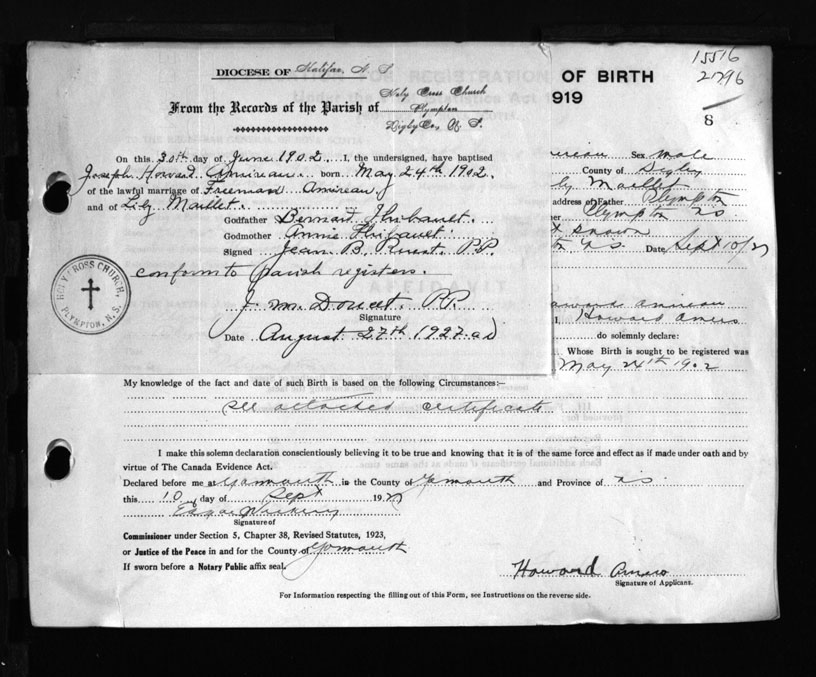 DIOCESE OF Halifax, N. S.
From the Records of the Parish of Holy Cross Church
Plympton
Digby Co, N. S.
On this 30th day of June 1902. I, the undersigned, have baptised
Joseph Howard Amireau. born May 24th 1902.
of the lawful marriage of Freeman Amireau.
and of Liz Maillet.
Godfather Bernard Thibault.
Godmother Annie Thibault.
Signed Jean B. P.P.
conform to parish registers.
J. M. Doucet. P.P.
Signature
Date August 27th 1927. a.d
HOLY CROSS CHURCH,
PLYMPTON, N.S.
15516
2796
8
OF BIRTH
919
Sex Male
County of Digby
Maillet
address of Father Plympton
Plympton NS
NS. Date Sept 10/27
Howard Amireau
I, Howard Amero
do solemnly declare:
Whose Birth is sought to be registered was
May 24th 1902
My knowledge of the fact and date of such Birth is based on the following Circumstances:—
See attached certificate
I make this solemn declaration conscientiously believing it to be true and knowing that it is of the same force and effect as if made under oath and by
virtue of The Canada Evidence Act.
Declared before me at Yarmouth in the County of Yarmouth and Province of NS.
this 10 day of Sept 1927
Signature of
Commissioner under Section 5, Chapter 38, Revised Statutes, 1923,
or Justice of the Peace in and for the County of Yarmouth
If sworn before a Notary Public affix seal.
Howard Amero
Signature of Applicant.
For Information respecting the filling out of this Form, see Instructions on the reverse side.